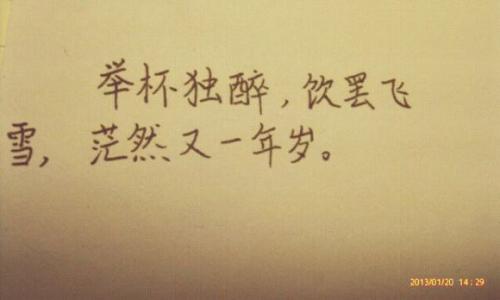 举杯独醉，饮罢飞
雪，茫然又一年岁。
2013/01/20 14:29